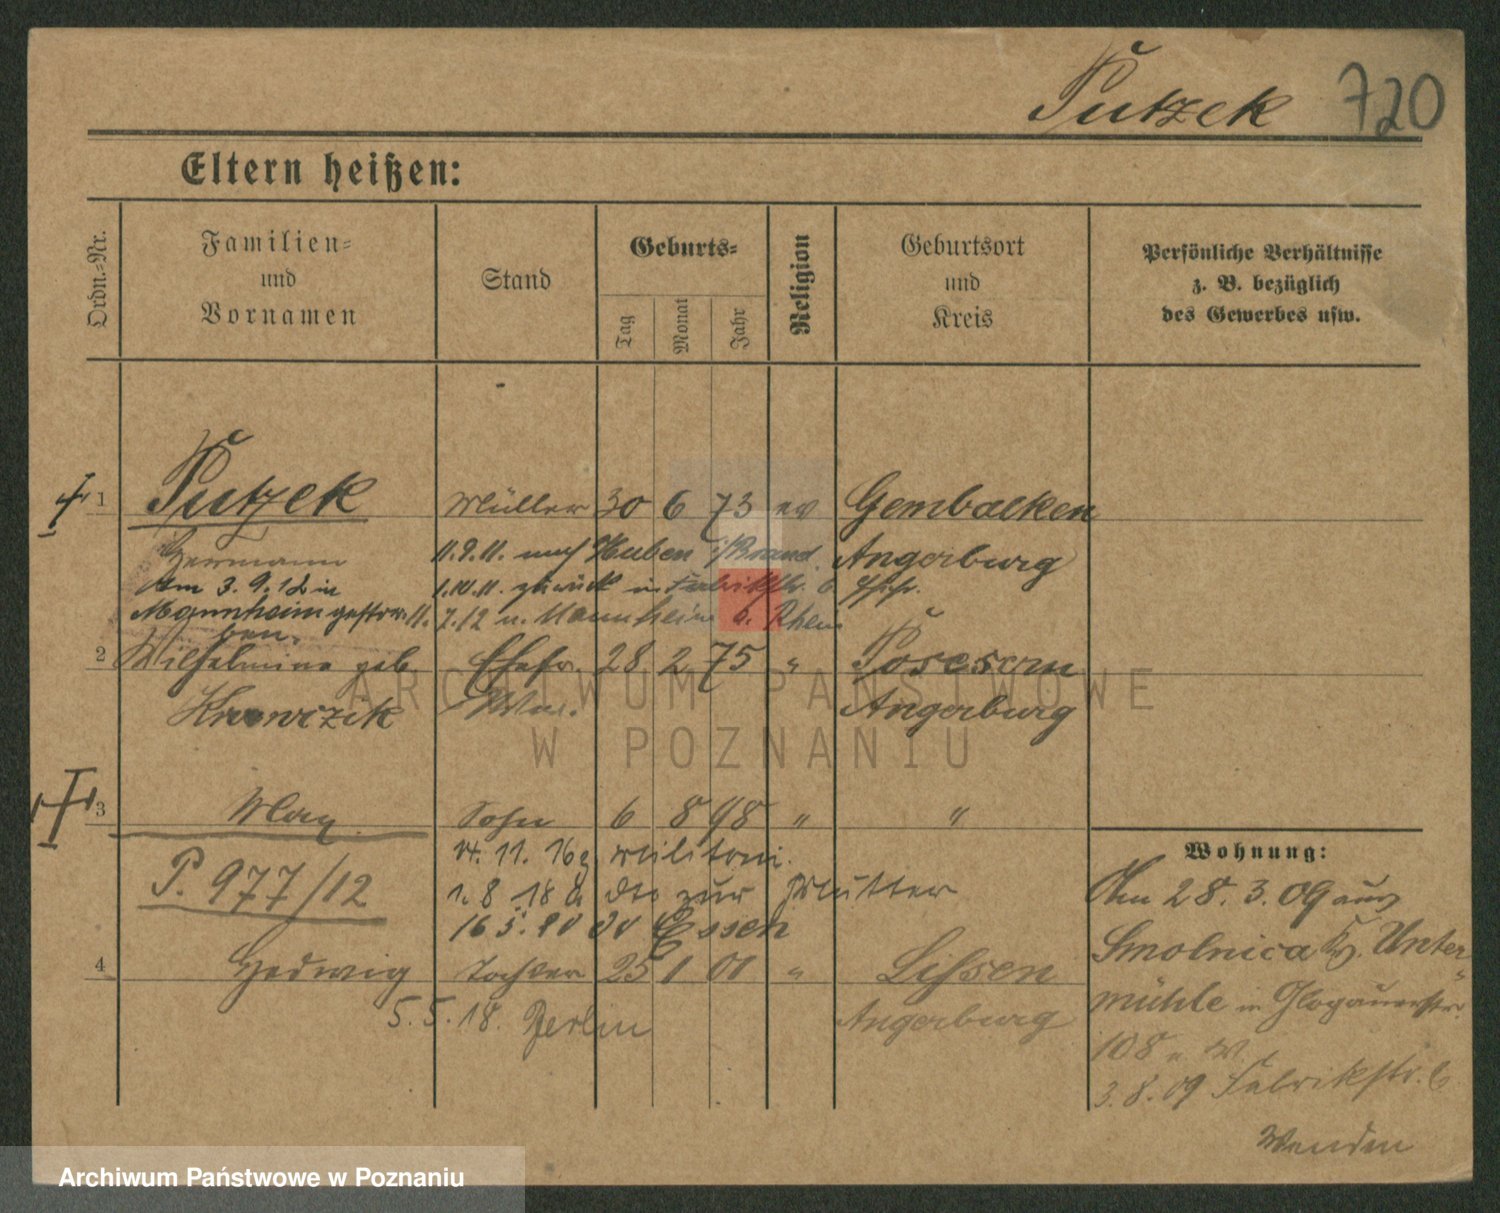 Putzek 720
Eltern heißen:
Ordn.-Nr.
Familien-
und
Vornamen
Stand
Geburts-
Tag
Monat
Jahr
Religion
Geburtsort
und
Kreis
Persönliche Verhältnisse
z. B. bezüglich
des Gewerbes usw.
1 Putzek Müller 30 6 73 ev Gembalken
Hermann 11.9.11. nach Huben Angerburg
Am 3.9.12 in 1.10.11. zurück in Fabrikstr. 6
Mannheim gestor- 11.7.12 n. Mannheim a. Rhein
ben.
2 Wilhelmine geb Ehefr. 28 2 75 " Possessern
Krawczik Ww. Angerburg
3 Max Sohn 6 8 98 " "
14.11.16 z. Militair.
P. 977/12
1.8.18 zur Mutter
16 5. 20 Essen
4 Hedwig Tochter 25 1 01 " Lissen
5.5.18. Berlin Angerburg
Wohnung:
Am 28.3.09 aus
Smolnica Kr. Unter-
mühle in Glogauerstr.
108
3.8.09 Fabrikstr. 6
Wenden
ARCHIWUM PAŃSTWOWE
W POZNANIU
Archiwum Państwowe w Poznaniu